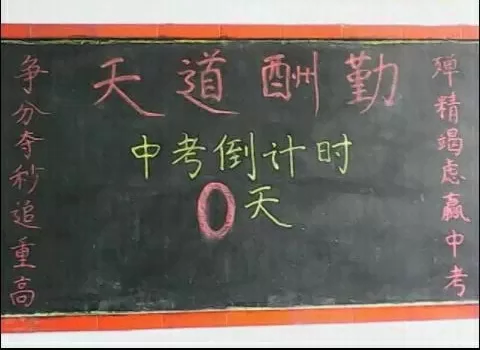 天道酬勤
中考倒计时
0天
争分夺秒追重高
殚精竭虑赢中考